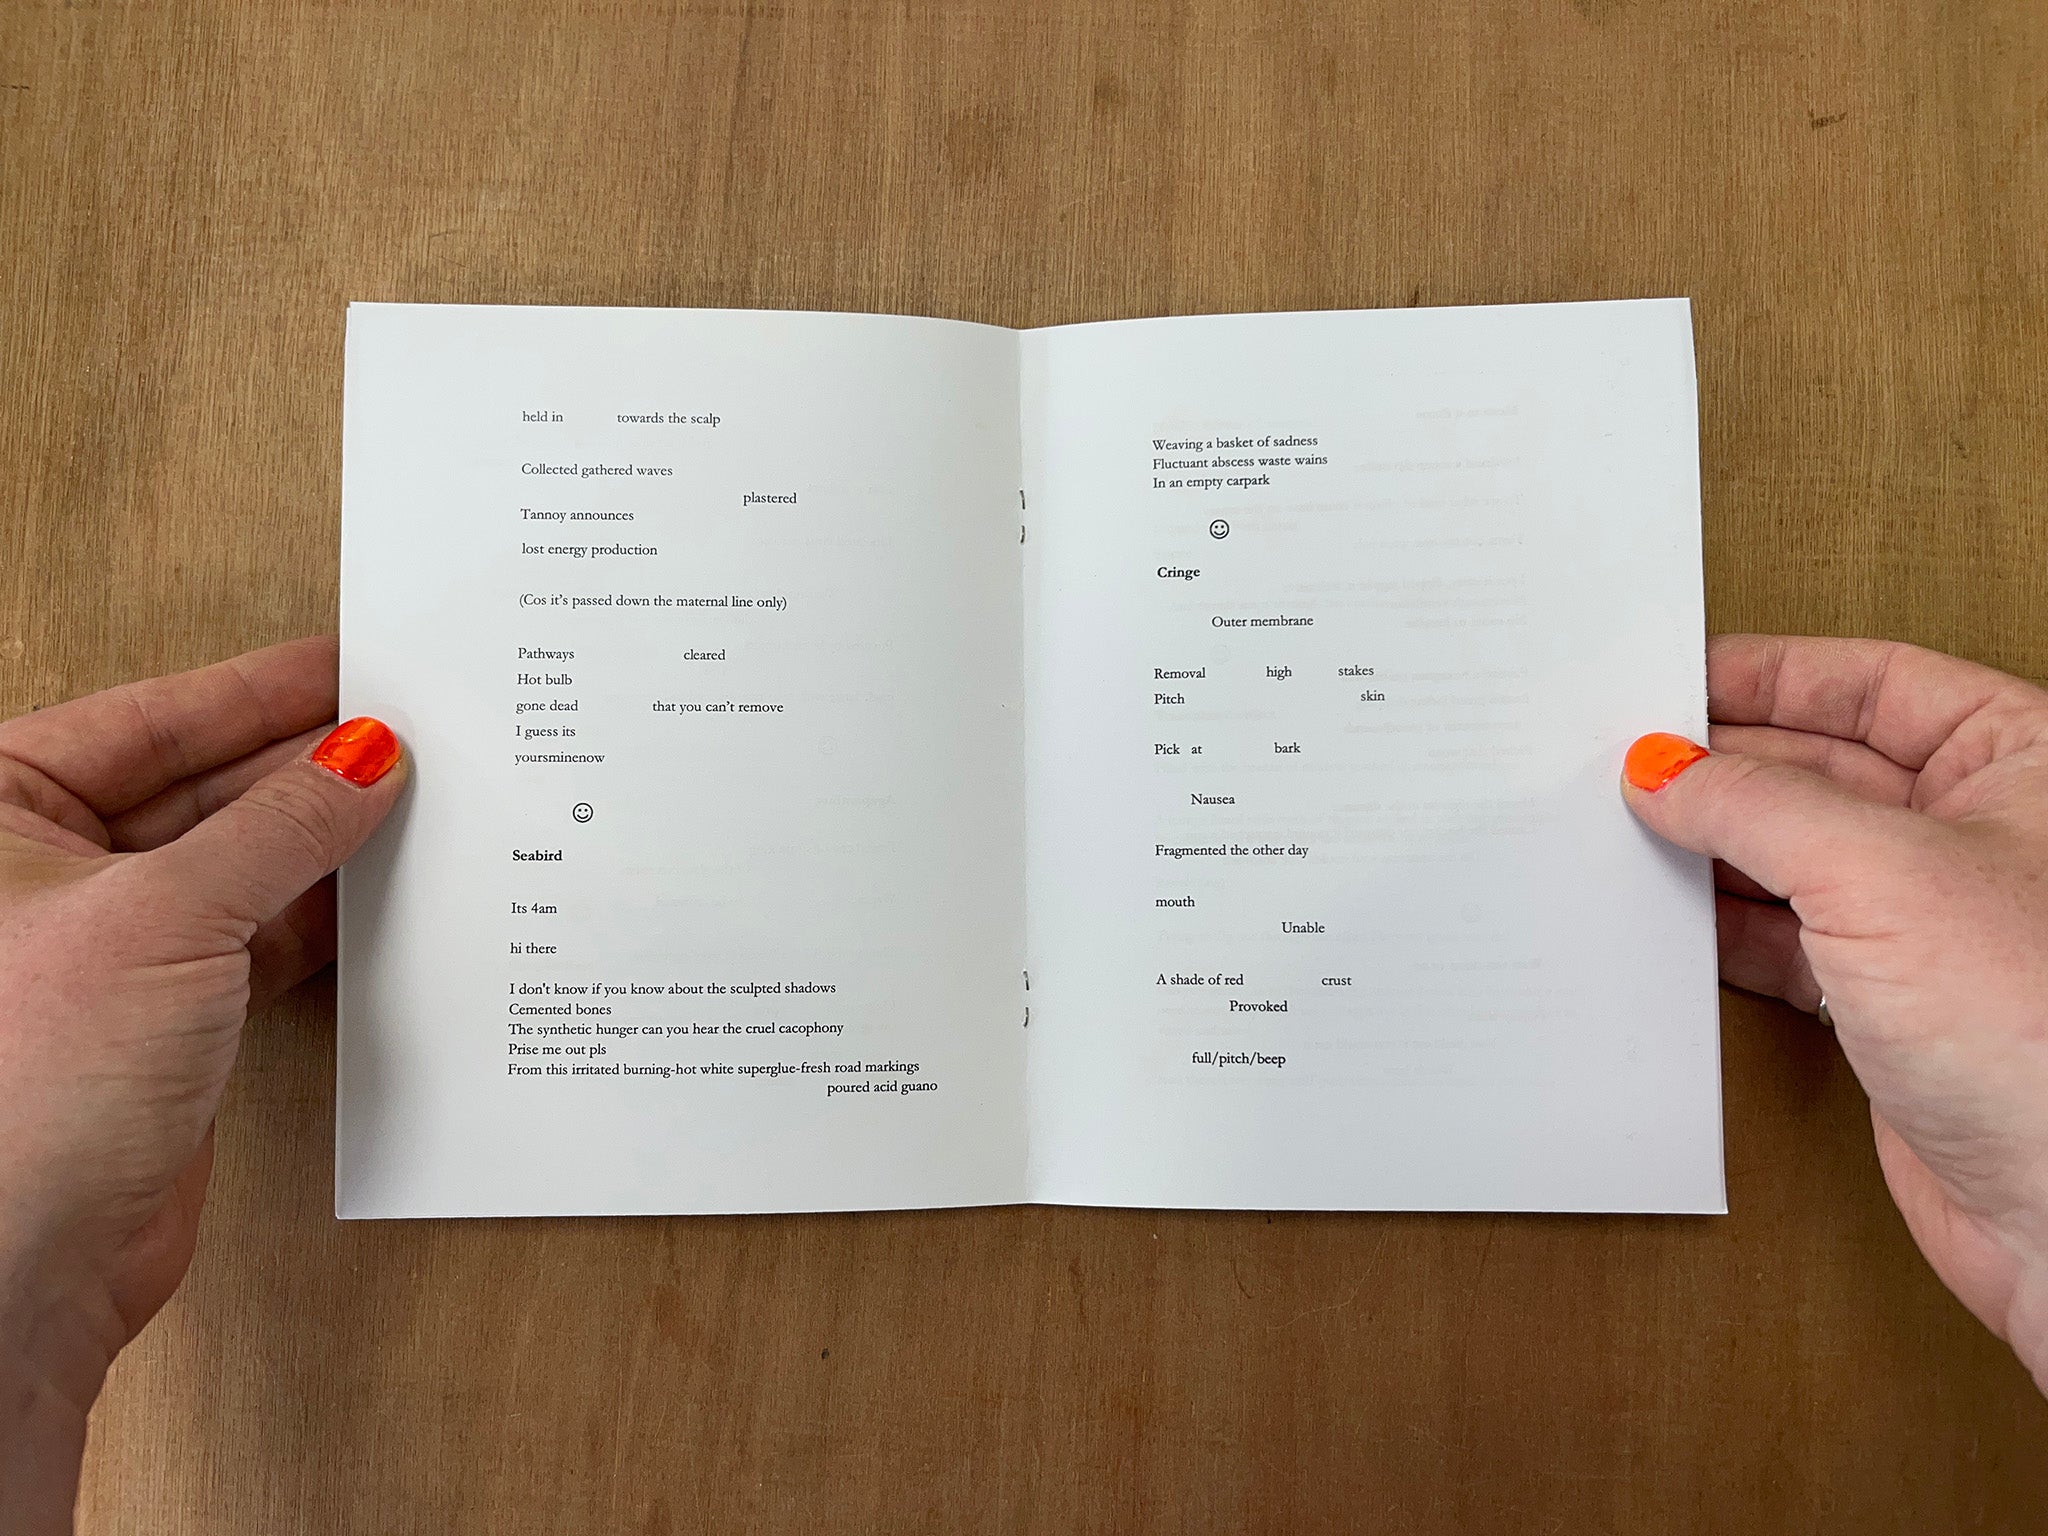 held in towards the scalp
Collected gathered waves
plastered
Tannoy announces
lost energy production
(Cos it’s passed down the maternal line only)
Pathways cleared
Hot bulb
gone dead that you can’t remove
I guess its
yoursminenow
☺
Seabird
Its 4am
hi there
I don't know if you know about the sculpted shadows
Cemented bones
The synthetic hunger can you hear the cruel cacophony
Prise me out pls
From this irritated burning-hot white superglue-fresh road markings
poured acid guano
Weaving a basket of sadness
Fluctuant abscess waste wains
In an empty carpark
☺
Cringe
Outer membrane
Removal high stakes
Pitch skin
Pick at bark
Nausea
Fragmented the other day
mouth
Unable
A shade of red crust
Provoked
full/pitch/beep